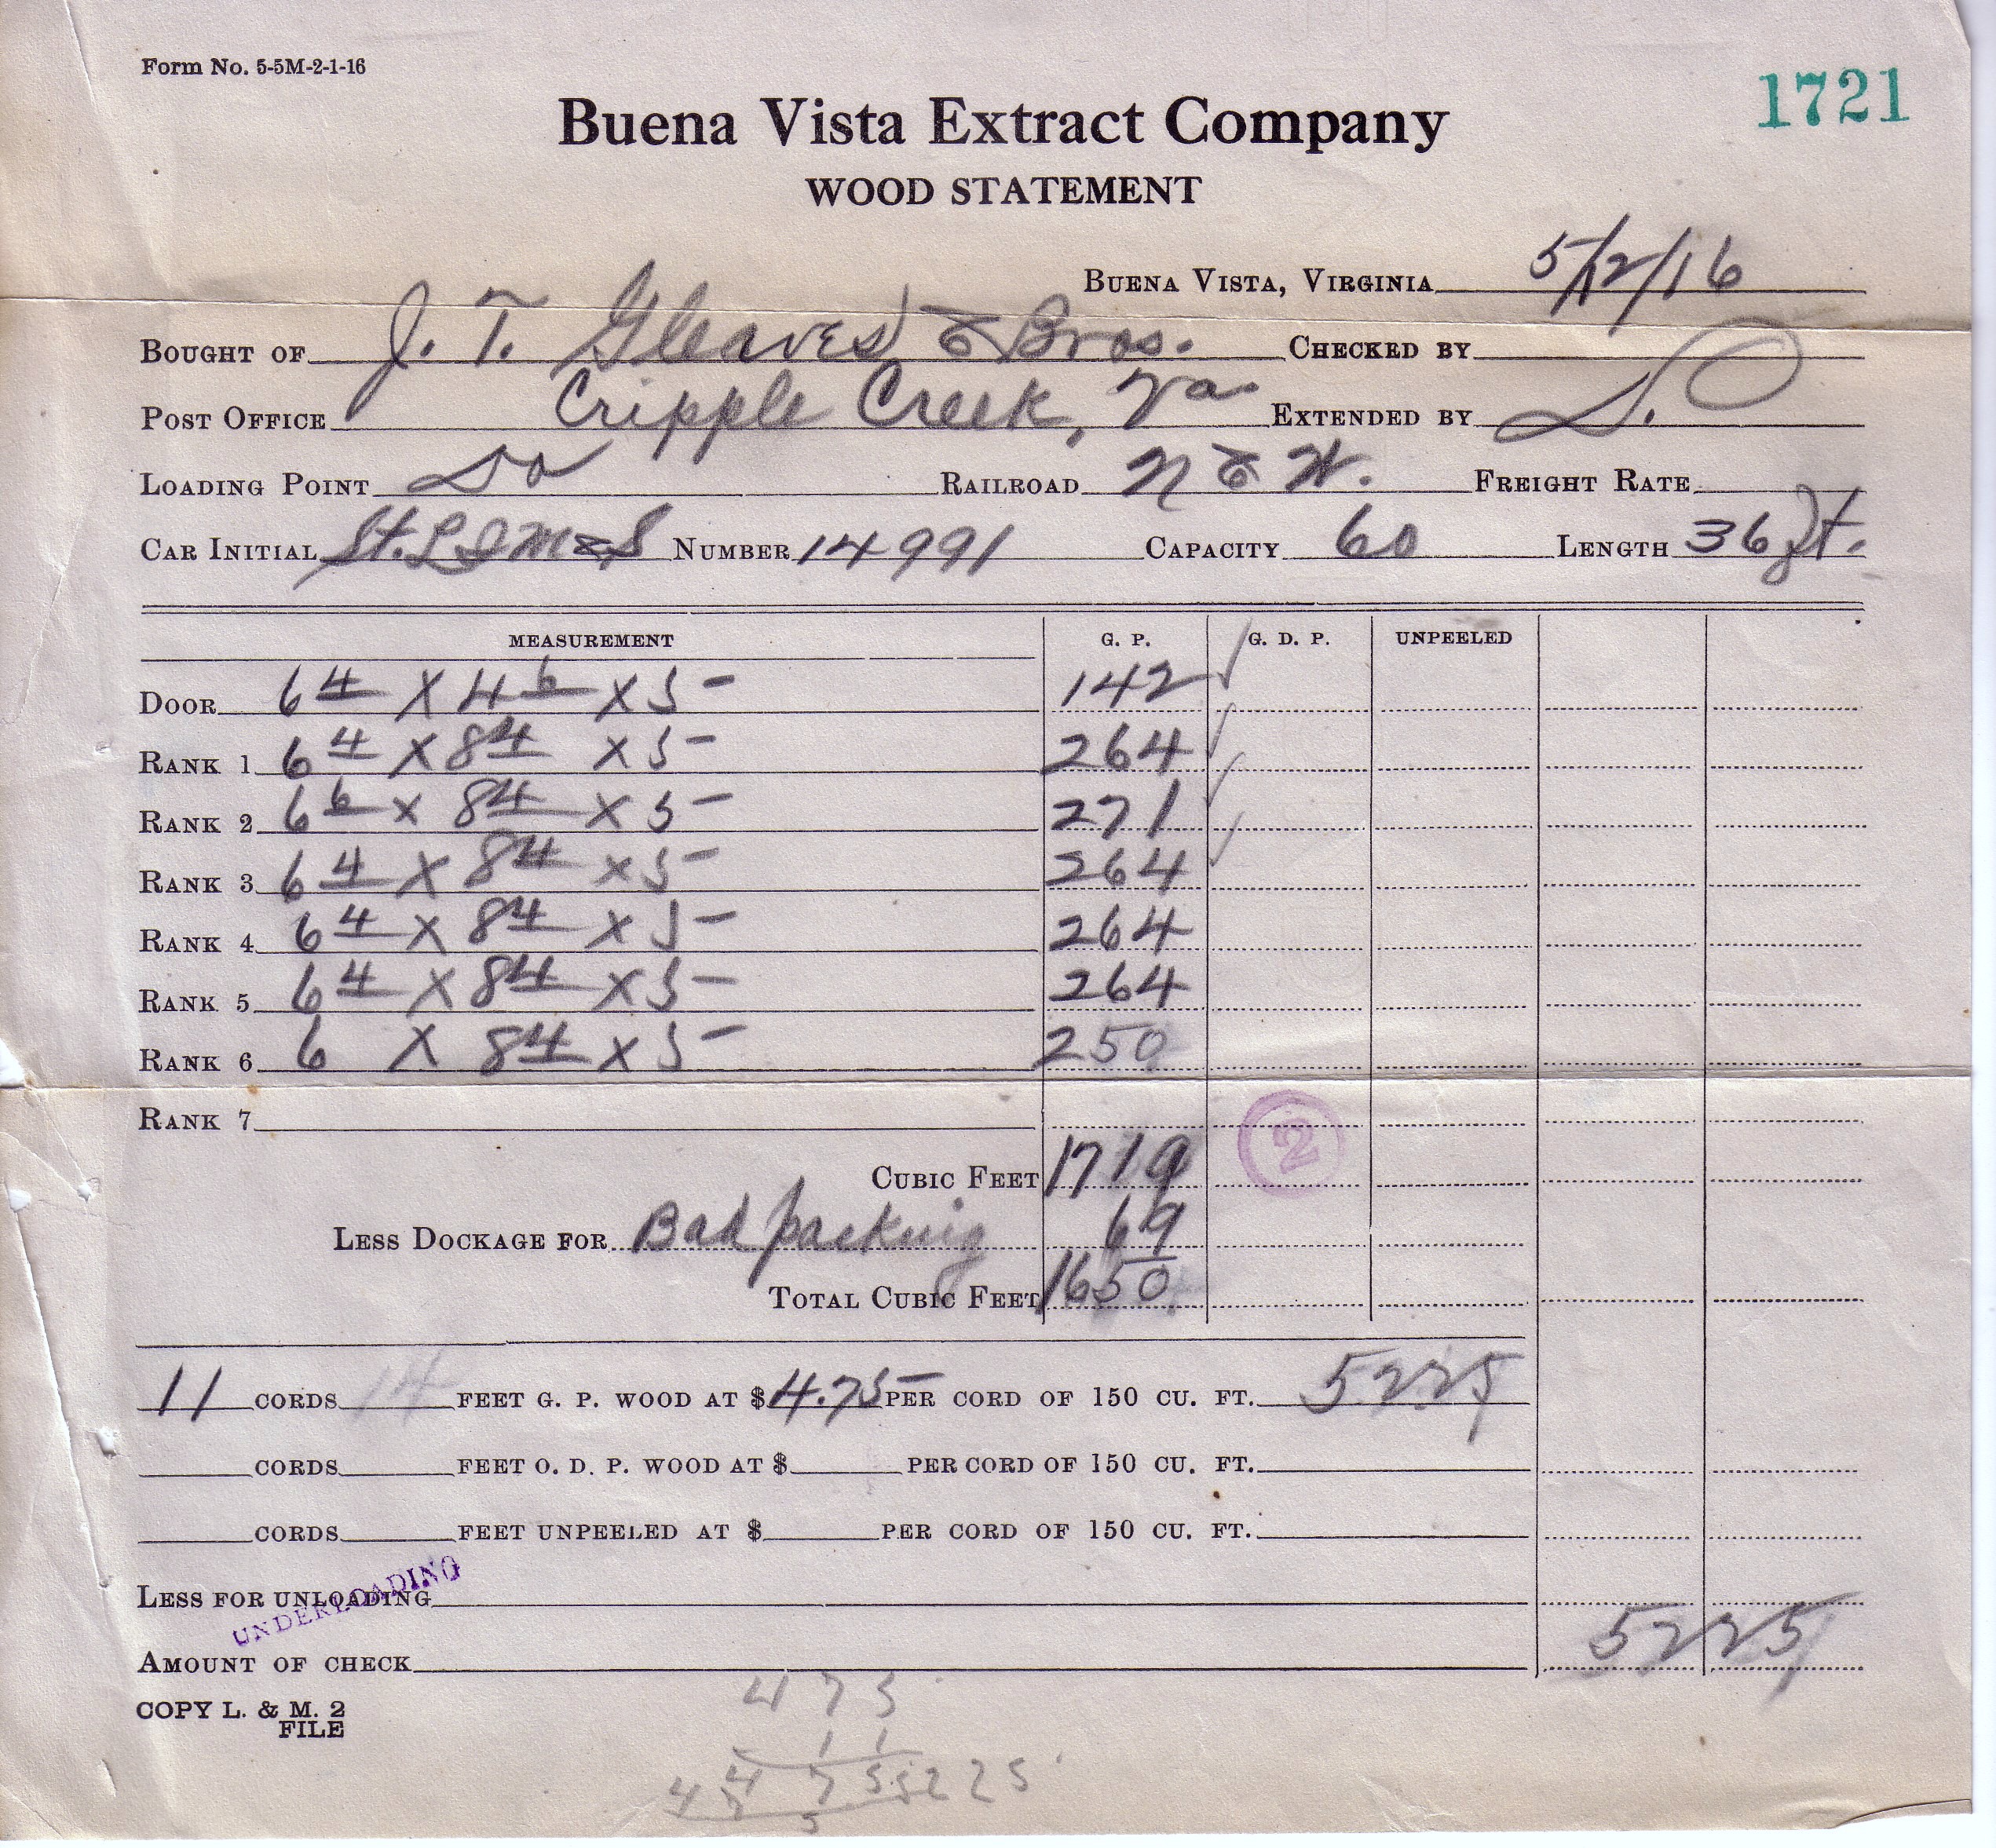 Form No. 5-5M-2-1-16
1721
Buena Vista Extract Company
WOOD STATEMENT
BUENA VISTA, VIRGINIA 5/12/16
BOUGHT OF J. T. Gleaves & Bros. CHECKED BY
POST OFFICE Cripple Creek, Va. EXTENDED BY S.
LOADING POINT Do RAILROAD N & W. FREIGHT RATE
CAR INITIAL St. L I M & S NUMBER 14991 CAPACITY 60 LENGTH 36 ft.
MEASUREMENT G. P. G. D. P. UNPEELED
DOOR 6 4 X 4 6 X 5 - 142
RANK 1 6 4 X 8 4 X 5 - 264
RANK 2 6 6 X 8 4 X 5 - 271
RANK 3 6 4 X 8 4 X 5 - 264
RANK 4 6 4 X 8 4 X 5 - 264
RANK 5 6 4 X 8 4 X 5 - 264
RANK 6 6 X 8 4 X 5 - 250
RANK 7
2
CUBIC FEET 1719
LESS DOCKAGE FOR Bad packing 69
TOTAL CUBIC FEET 1650
11 CORDS 14 FEET G. P. WOOD AT $ 4.75 PER CORD OF 150 CU. FT. 5225
CORDS FEET O. D. P. WOOD AT $ PER CORD OF 150 CU. FT.
CORDS FEET UNPEELED AT $ PER CORD OF 150 CU. FT.
LESS FOR UNLOADING
UNDERLOADING
AMOUNT OF CHECK 5225
COPY L. & M. 2
FILE
475
11
475 5225